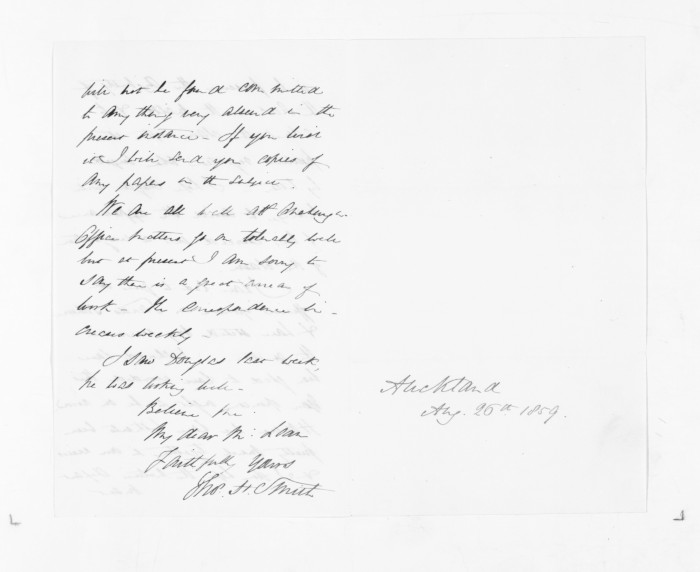 will not be found committed
to any thing very absurd in the
present instance - If you wish
it I will send you copies of
any papers on the subject.
We are all well at
Office matters go on tolerably well
but at present I am sorry to
say there is a great arrear of
work - the correspondence in-
creases weekly
I saw Douglas last week,
he was looking well -
Believe me
My dear Mc Lean
Faithfully Yours
Thos. H. Smith
Auckland
Aug. 26th 1859.